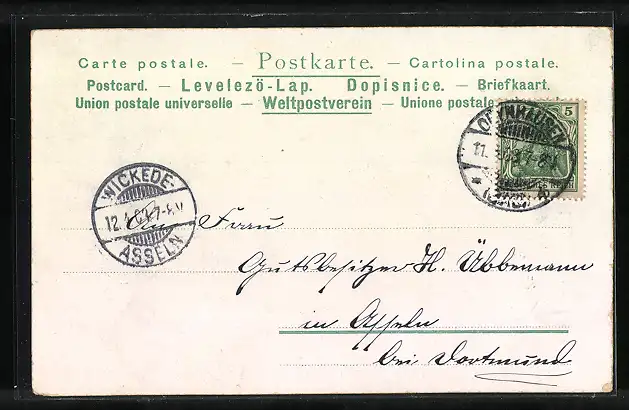 Carte postale. — Postkarte. — Cartolina postale.
Postcard. — Levelezö-Lap. Dopisnice. — Briefkaart.
Union postale universelle — Weltpostverein — Unione postale
5
OEYNHAUSEN
11.
WICKEDE-
12.
ASSELN
An Frau
Gutsbesitzer H. Übbemann
in Asseln
bei Dortmund